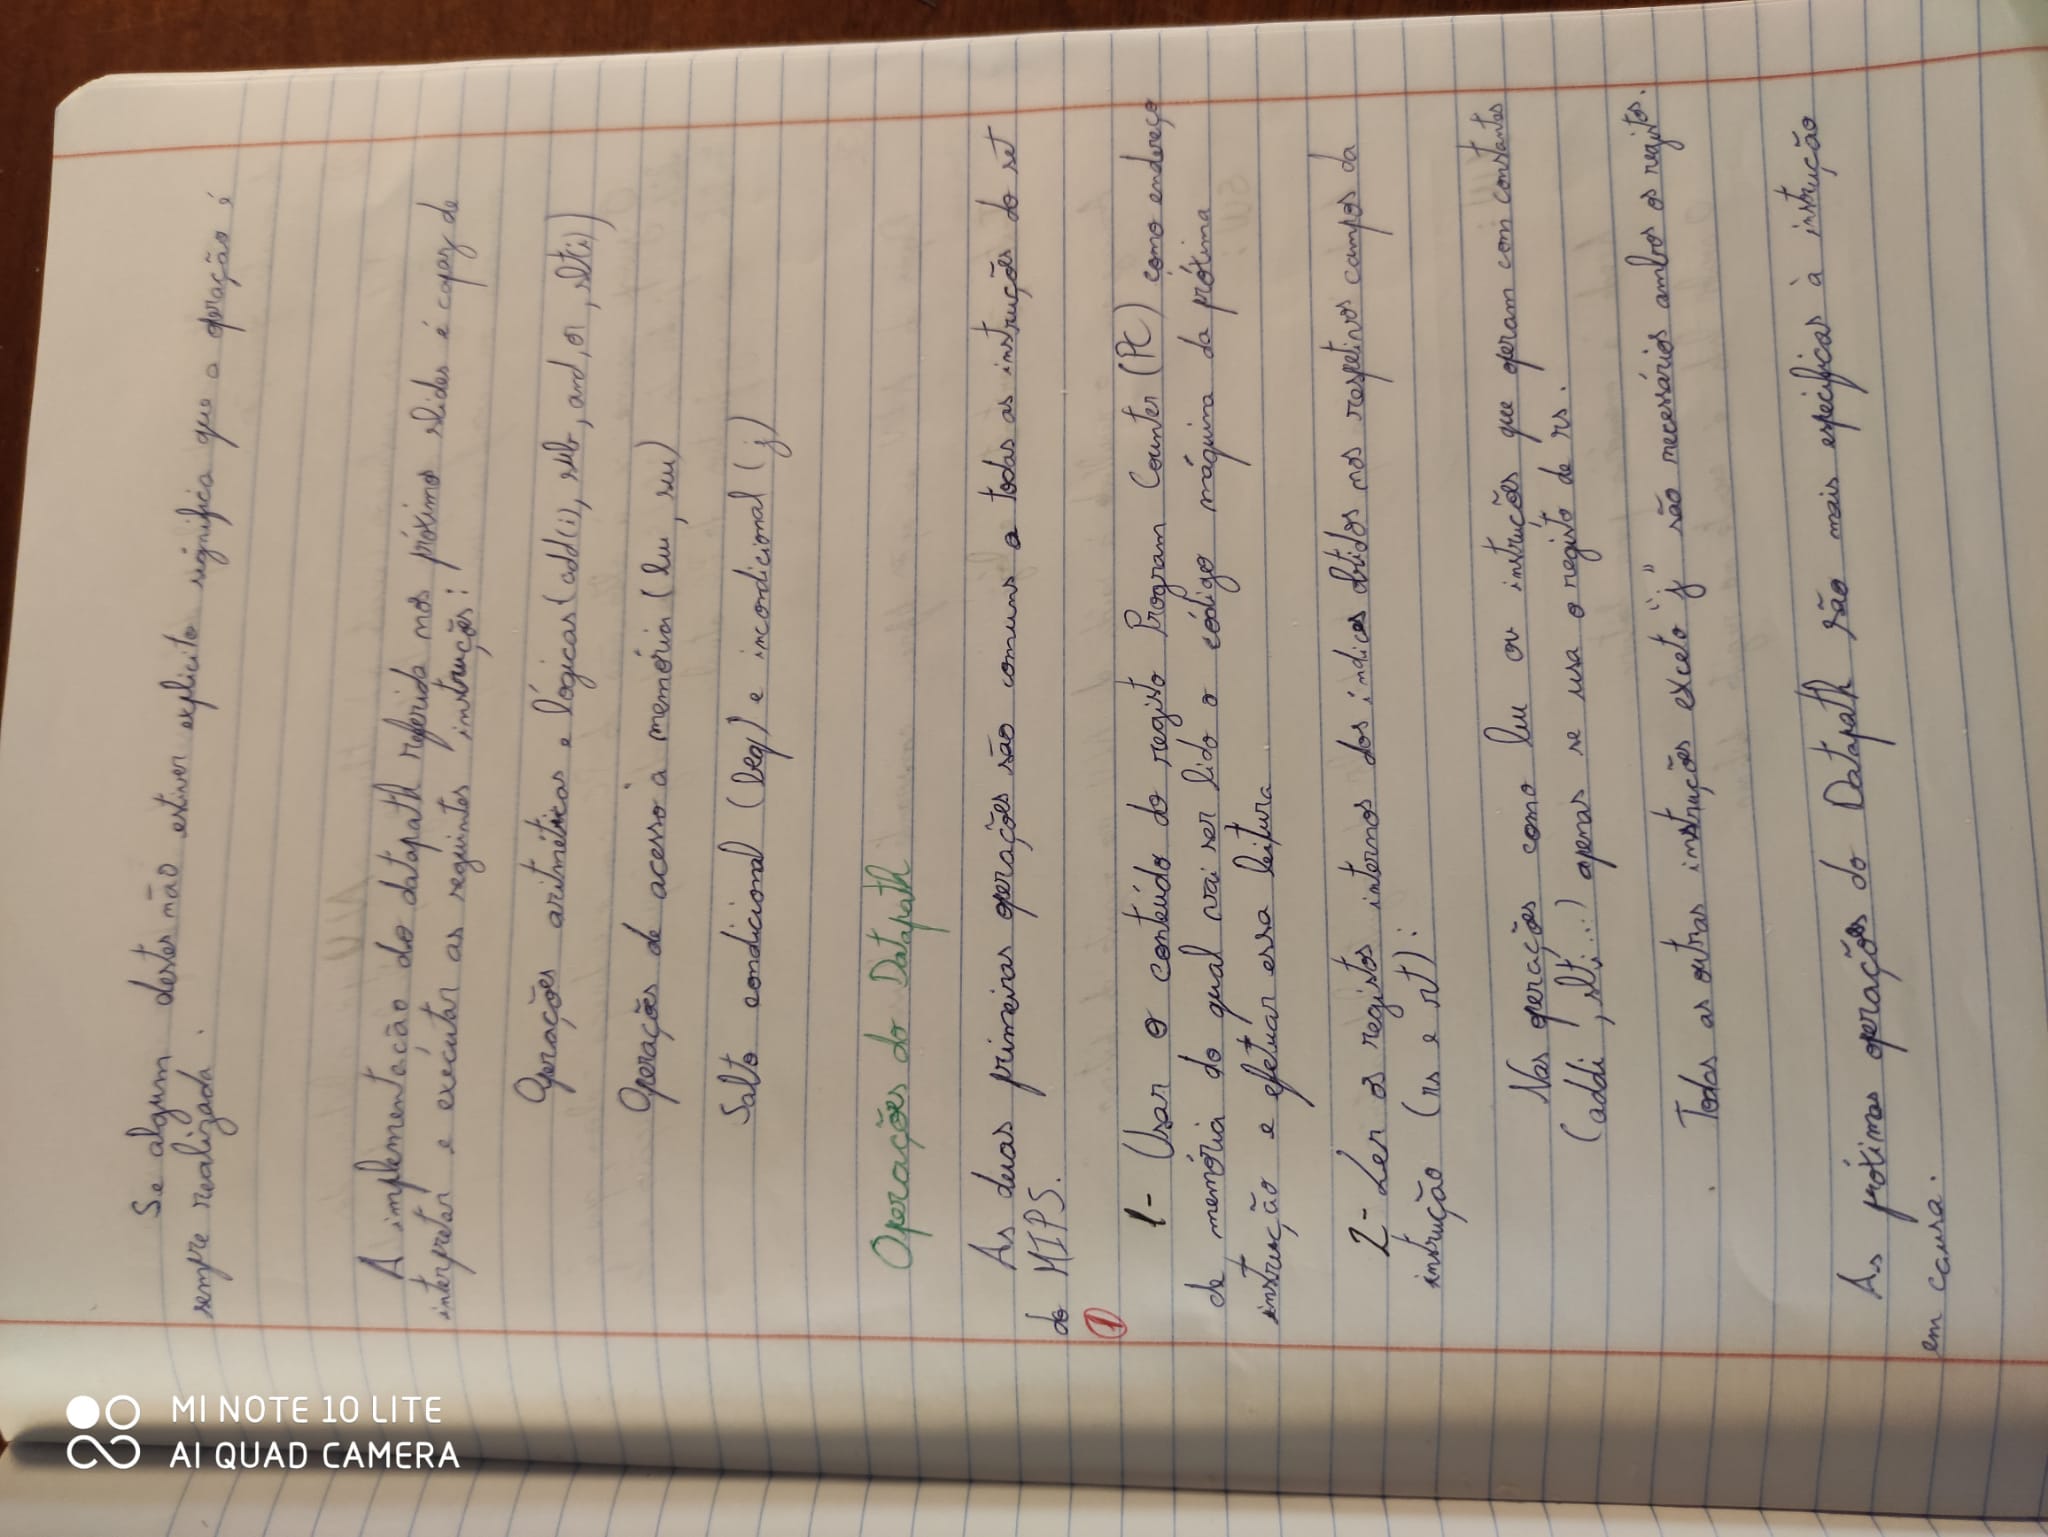 MI NOTE 10 LITE
AI QUAD CAMERA
Se algum destes não estiver explicito significa que a operação é
sempre realizada.
A implementação do datapath referida nos próximos slides é capaz de
interpretar e executar as seguintes instruções:
Operações aritméticas e lógicas (add(i), sub, and, or, slt(i))
Operações de acesso à memória (lw, sw)
Salto condicional (beq) e incondicional (j)
Operações do Datapath
As duas primeiras operações são comuns a todas as instruções do set
do MIPS.
1
1- Usar o conteúdo do registo Program Counter (PC) como endereço
de memória do qual vai ser lido o código máquina da próxima
instrução e efetuar essa leitura
2- Ler os registos internos dos índices obtidos nos respetivos campos da
instrução (rs e rt):
Nas operações como lw ou instruções que operam com constantes
(addi, slti...) apenas se usa o registo de rs.
Todas as outras instruções exceto "j" são necessários ambos os registos.
As próximas operações do Datapath são mais especificas à instrução
em causa.